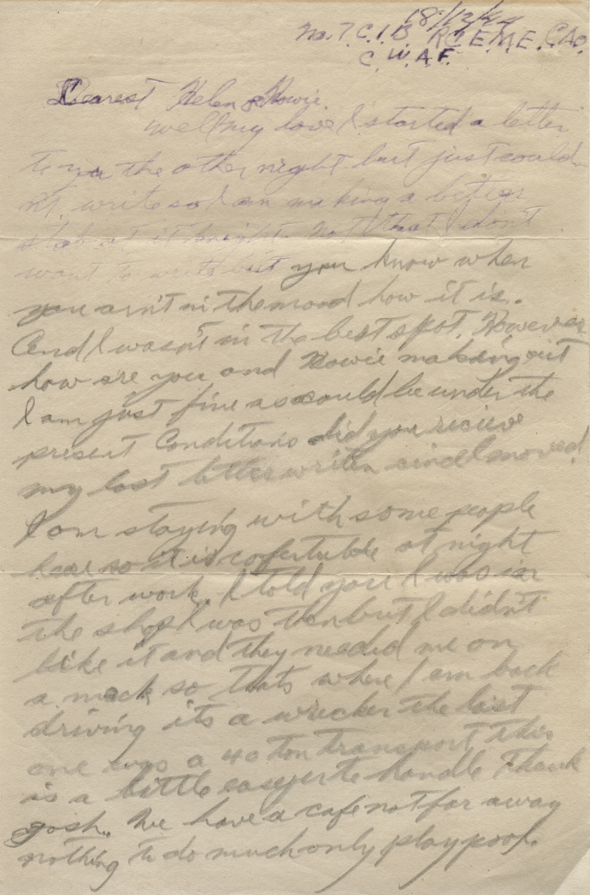 18/12/44
No. 7 C.I.B. R.C.E.M.E. C.A.O.
C.W.A.F.
Dearest Helen & Howie.
Well my love I started a letter
to you the other night but just could
nt. write so I am making a better
stab at it tonight. Not that I don't
want to write but you know when
you ain't in the mood how it is.
And I wasn't in the best spot. However
how are you and Howie making out
I am just fine as could be under the
present Conditions did you recieve
my last letter writen since I moved
I am staying with some people
here so it is cofortable at night
after work. I told you I was in
the shop I was then but I didn't
like it and they needed me on
a mack so thats where I am back
driving its a wrecker the last
one was a 40 ton transport this
is a little easyer to handle Thank
gosh. We have a cafe not far away
nothing to do much only play pool.